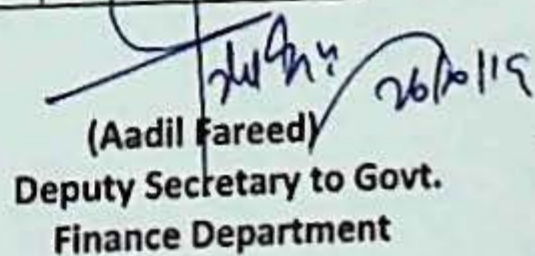 26/10/19
(Aadil Fareed)
Deputy Secretary to Govt.
Finance Department